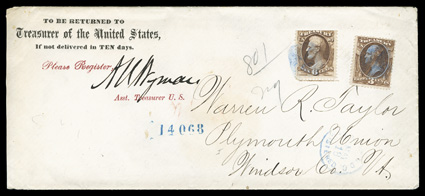 TO BE RETURNED TO
Treasurer of the United States,
If not delivered in TEN days.
Please Register
A U Wyman
Asst. Treasurer U. S.
801
14068
TREASURY
TREASURY
Warren R. Taylor
Plymouth Union
Windsor Co. Vt.